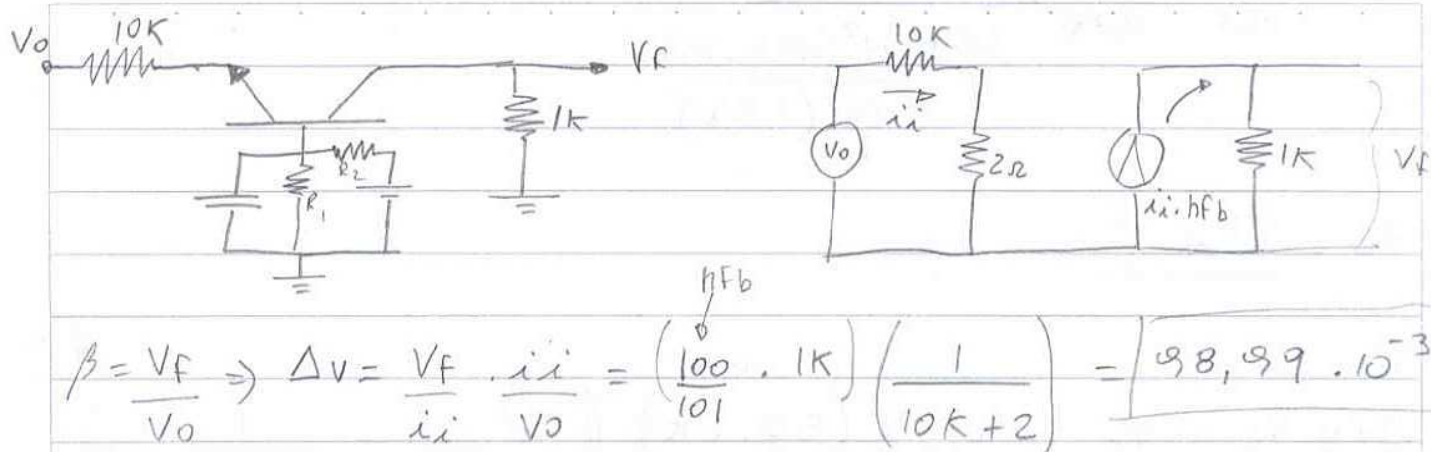 10K
Vo
Vf
1K
R2
R1
10K
ii
Vo
2Ω
ii.hfb
1K
Vf
hfb
β = Vf / Vo ⇒ Δv = Vf / ii . ii / Vo = (100 / 101 . 1K) (1 / (10K + 2)) = 98,99 . 10^-3